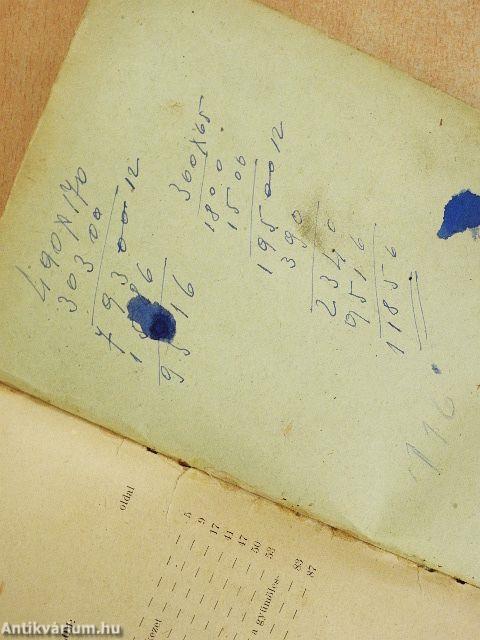 490×170
30300
79300 12
9516
300×65
1800
1500
19500 12
390
2340
9516
11856
116
oldal
5
9
17
41
47
50
53
a gyümölcs-
83
87
Antikvárium.hu